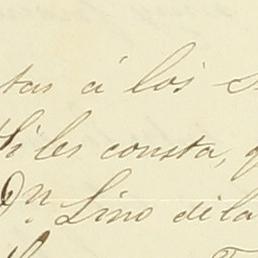 tas á los s
Si les consta, q
Dn. Lino dila